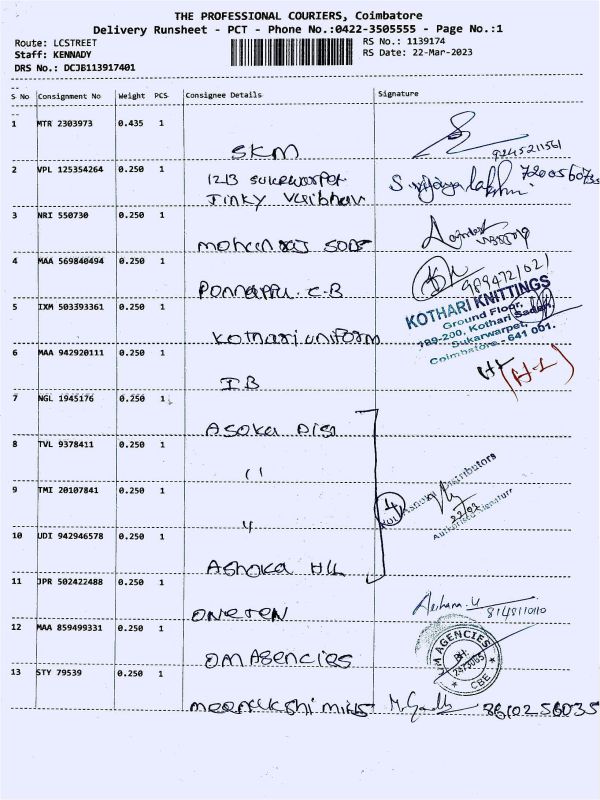 THE PROFESSIONAL COURIERS, Coimbatore
Delivery Runsheet - PCT - Phone No.:0422-3505555 - Page No.:1
Route: LCSTREET
RS No.: 1139174
Staff: KENNADY
RS Date: 22-Mar-2023
DRS No.: DCJB113917401
S No Consignment No Weight PCS Consignee Details Signature
1 MTR 2303973 0.435 1
SKM 9245211561
2 VPL 125354264 0.250 1
1213 7200560735
Jinky Vaibhav
3 NRI 550730 0.250 1
4 MAA 569840494 0.250 1
Ponnappu. C-B
KOTHARI KNITTINGS
Ground Floor,
199-200, Kothari Sadan,
Sukarwarpet,
Coimbatore - 641 001.
5 IXM 503393361 0.250 1
Kothari uniform
6 MAA 942920111 0.250 1
IB
(H-L)
7 NGL 1945176 0.250 1
Asoka Dist
8 TVL 9378411 0.250 1
"
9 TMI 20107841 0.250 1
"
4
Distributors
22/03
Authorised Signatory
10 UDI 942946578 0.250 1
Ashoka HLL
11 JPR 502422488 0.250 1
Oneten
8148110110
12 MAA 859499331 0.250 1
OM Agencies
OM AGENCIES
PH:
CBE
13 STY 79539 0.250 1
meenakshi mills 8610256035